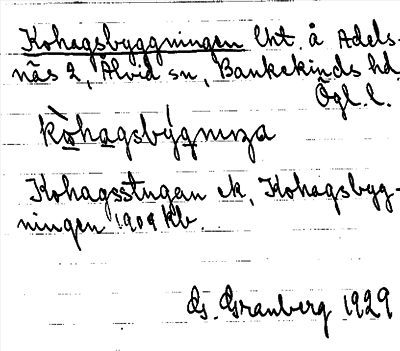 Kohagsbyggningen lht. å Adels-
näs 2, Älvid sn, Bankekinds hd,
Ögl. l.
kòhagsbýgnıŋa
Kohagsstugan ek, Kohagsbyg-
ningen 1909 kb.
G. Granberg 1929